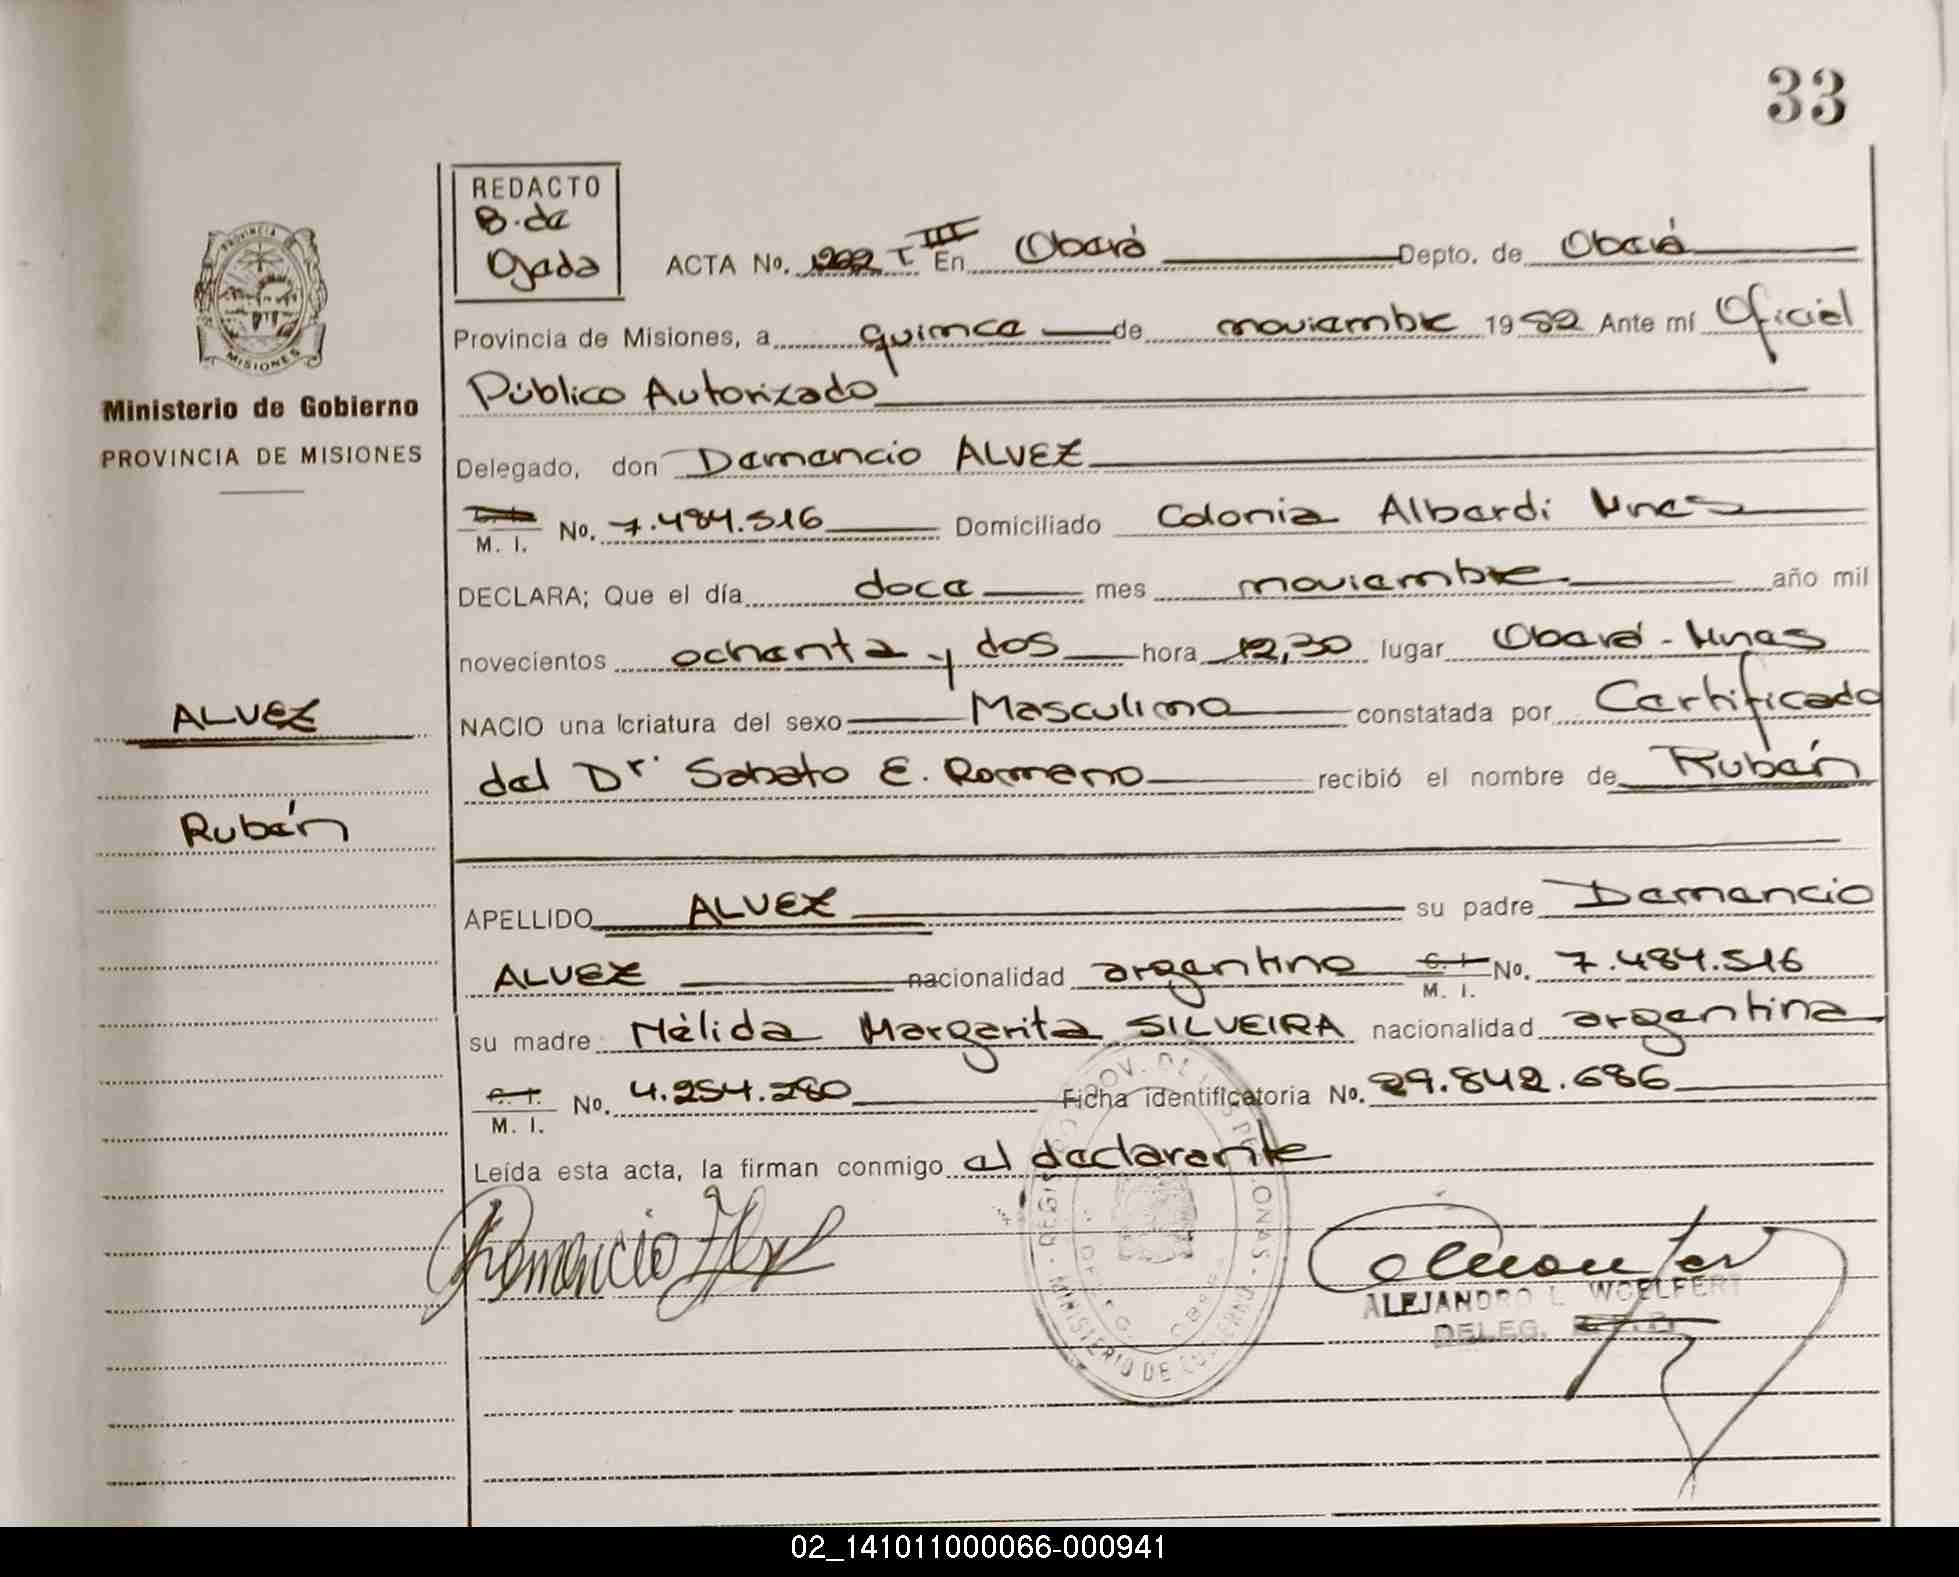 33
REDACTO
B. de
Ojeda
ACTA No. 1202 T III En Oberá Depto. de Oberá
Provincia de Misiones, a quince de noviembre 1982 Ante mí Oficial
Público Autorizado
Ministerio de Gobierno
PROVINCIA DE MISIONES
Delegado, don Demencio ALVEZ
M. I. No. 7.484.516 Domiciliado Colonia Alberdi Mnes
DECLARA; Que el día doce mes noviembre año mil
novecientos ochenta y dos hora 12,30 lugar Oberá - Mnes
ALVEZ
NACIO una criatura del sexo Masculino constatada por Certificado
del Dr. Sabato E. Romero recibió el nombre de Rubén
Rubén
APELLIDO ALVEZ su padre Demencio
ALVEZ nacionalidad argentino C. I. M. I. No. 7.484.516
su madre Nélida Margarita SILVEIRA nacionalidad argentina
C. I. M. I. No. 4.254.280 Ficha identificatoria No. 29.842.686
Leída esta acta, la firman conmigo el declarente
ALEJANDRO L. WOELFERT
DELEG.
02_141011000066-000941